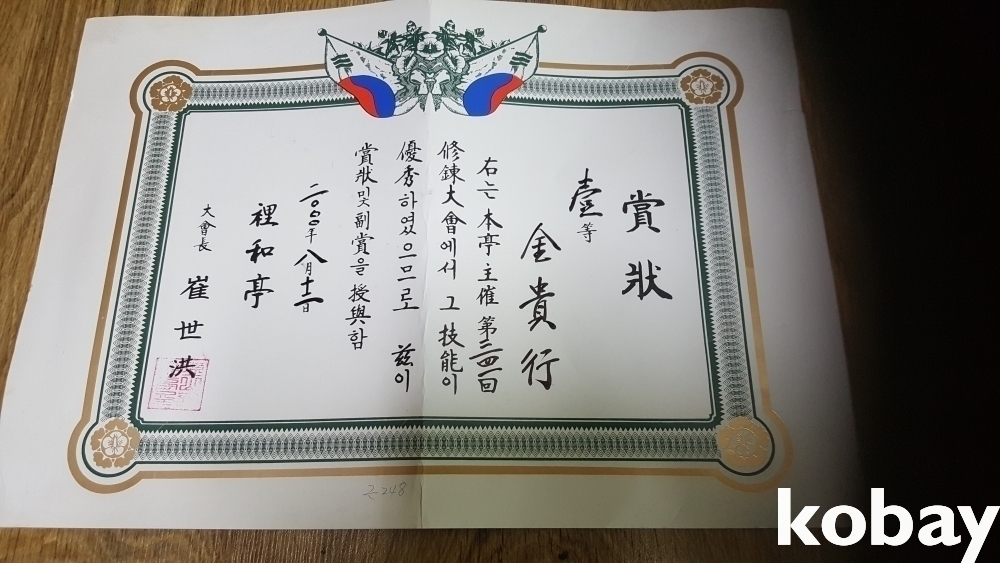 賞狀
壹等
金貴行
右는 本亭主催 第
修鍊大會에서 그 技能이
優秀하였으므로 玆이
賞狀 및 副賞을 授與함
年 八月
裡和亭
大會長 崔世洪
248
kobay